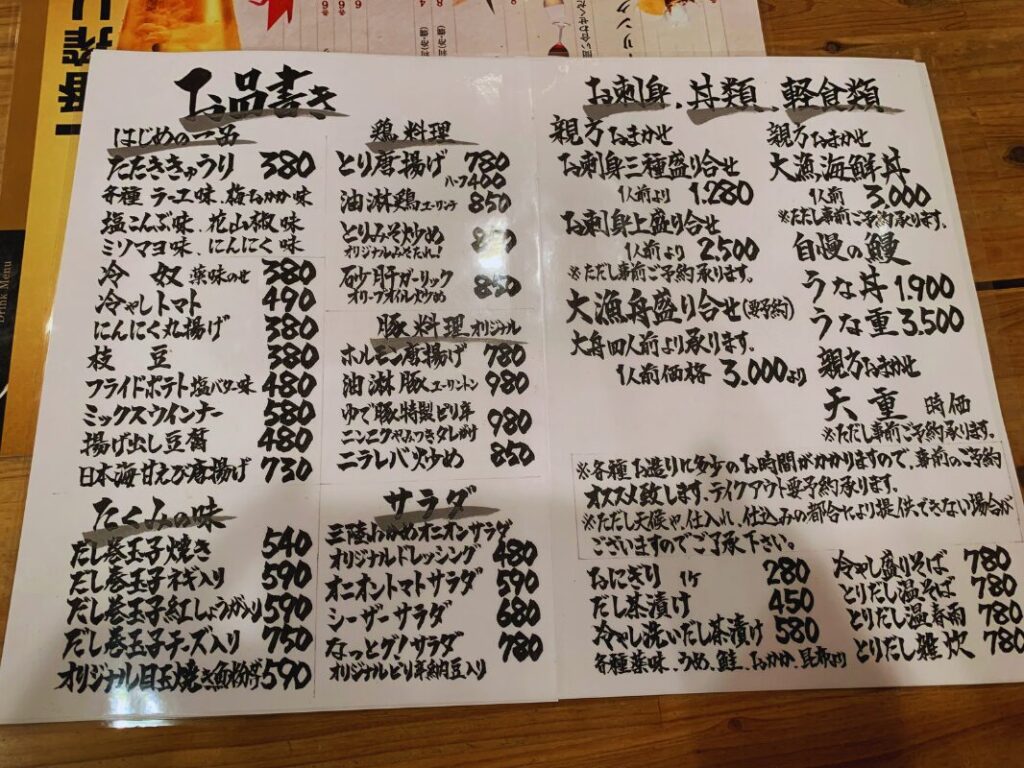 お品書き
はじめの一品
たたききゅうり 380
各種 ラー工味、梅おかか味
塩こんぶ味、花山椒味
ミソマヨ味、にんにく味
冷 奴 薬味のせ 380
冷やしトマト 490
にんにく丸揚げ 380
枝 豆 380
フライドポテト 塩バター味 480
ミックスウインナー 580
揚げ出し豆腐 480
日本海甘えび唐揚げ 730
たくみの味
だし巻玉子焼き 540
だし巻玉子ネギ入り 590
だし巻玉子紅しょうが入り 590
だし巻玉子チーズ入り 750
オリジナル目玉焼き 590
鶏料理
とり唐揚げ 780
ハーフ400
油淋鶏 ユーリンチ 850
とりみそ炒め 850
オリジナルみそだれ!
砂肝ガーリック
オリーブオイル炒め 850
豚料理 オリジナル
ホルモン唐揚げ 780
油淋豚 ユーリントン 980
ゆで豚特製ピリ辛
ニンニクやみつきタレがけ 980
ニラレバ炒め 850
サラダ
三陸わかめオニオンサラダ
オリジナルドレッシング 480
オニオントマトサラダ 590
シーザーサラダ 680
なっとグ!サラダ 780
オリジナルピリ辛納豆入り
お刺身、丼類、軽食類
親方おまかせ
お刺身三種盛り合せ
1人前より 1.280
お刺身上盛り合せ
1人前より 2.500
※ただし事前ご予約承ります。
大漁舟盛り合せ(要予約)
大舟四人前より承ります。
1人前価格 3.000より
親方おまかせ
大漁海鮮丼
1人前 3.000
※ただし事前ご予約承ります。
自慢の鰻
うな丼 1.900
うな重 3.500
親方おまかせ
天重 時価
※ただし事前ご予約承ります。
※各種お造りに多少のお時間がかかりますので、事前のご予約
オススメ致します。テイクアウト要予約承ります。
※ただし天候や、仕入れ、仕込みの都合により提供できない場合が
ございますのでご了承下さい。
おにぎり 1ケ 280
だし茶漬け 450
冷やし洗いだし茶漬け 580
各種薬味、うめ、鮭、おかか、昆布より
冷やし盛りそば 780
とりだし温そば 780
とりだし温春雨 780
とりだし雑炊 780
Drink Menu